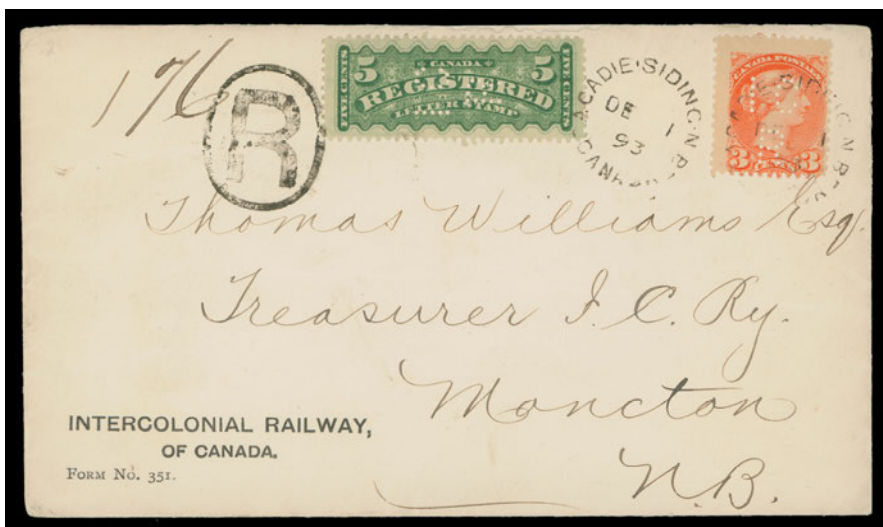 176
R
5 CANADA 5
FIVE CENTS REGISTERED FIVE CENTS
LETTER STAMP
ACADIE·SIDING·N.B.
DE 1
93
CANADA
CANADA POSTAGE
3 3
Thomas Williams Esq.
Treasurer I. C. Ry.
Moncton
N.B.
INTERCOLONIAL RAILWAY,
OF CANADA.
FORM No. 351.